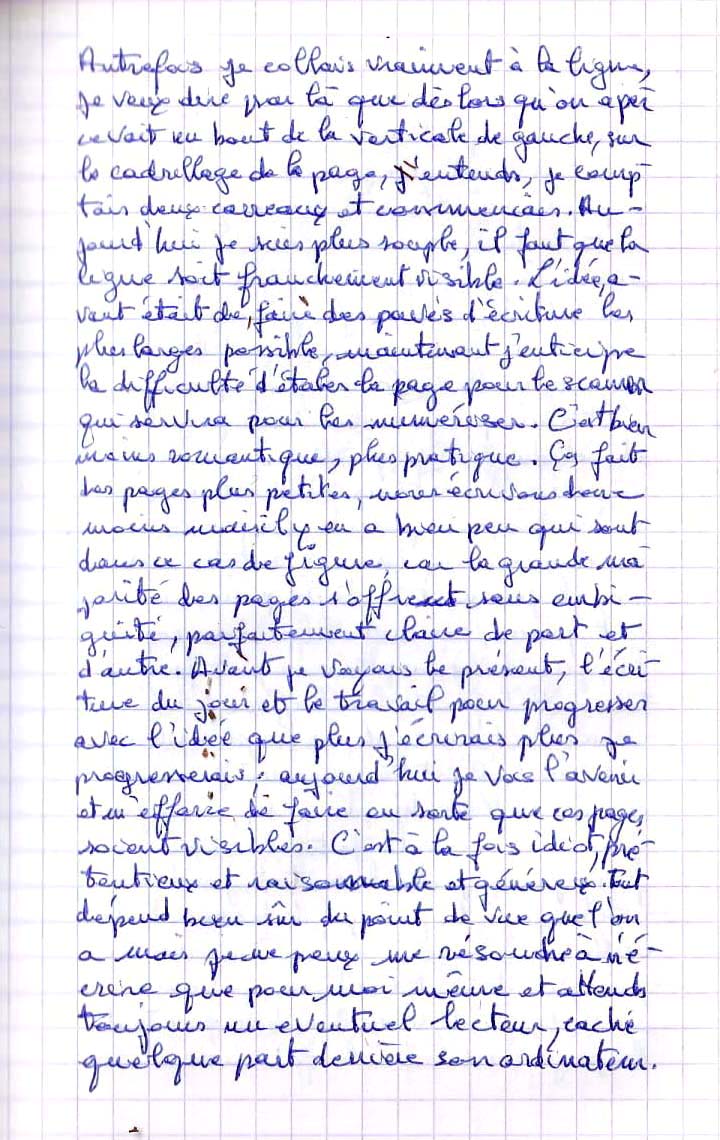 Autrefois je collais vraiment à la ligne,
je veux dire par là que dès lors qu'on aper
cevait un bout de la verticale de gauche, sur
le cadrillage de la page, j'entends, je comp-
tais deux carreaux et commençais. Au-
jourd'hui je suis plus souple, il faut que la
ligne soit franchement visible. L'idée, a-
vant était de, faire des pavés d'écriture les
plus larges possible, maintenant j'enticipe
la difficulté d'étaler la page pour le scanner
qui servira pour les numériser. C'est bien
moins romantique, plus pratique. Ça fait
des pages plus petites, nous écrivons donc
moins mais il y en a bien peu qui sont
dans ce cas de figure, car la grande ma
jorité des pages s'offrent sans embi-
guité, parfaitement claire de part et
d'autre. Avant je voyais le présent, l'écri
ture du jour et le travail pour progresser
avec l'idée que plus j'écrirais plus je
progresserais; aujourd'hui je vois l'avenir
et m'efforce de faire en sorte que ces pages
soient visibles. C'est à la fois idiot, pré-
tentieux et raisonnable et généreux. Tout
dépend bien sûr du point de vue que l'on
a mais je ne peux me résoudre à n'é-
crire que pour moi même et attends
toujours un eventuel lecteur, caché
quelque part derrière son ordinateur.